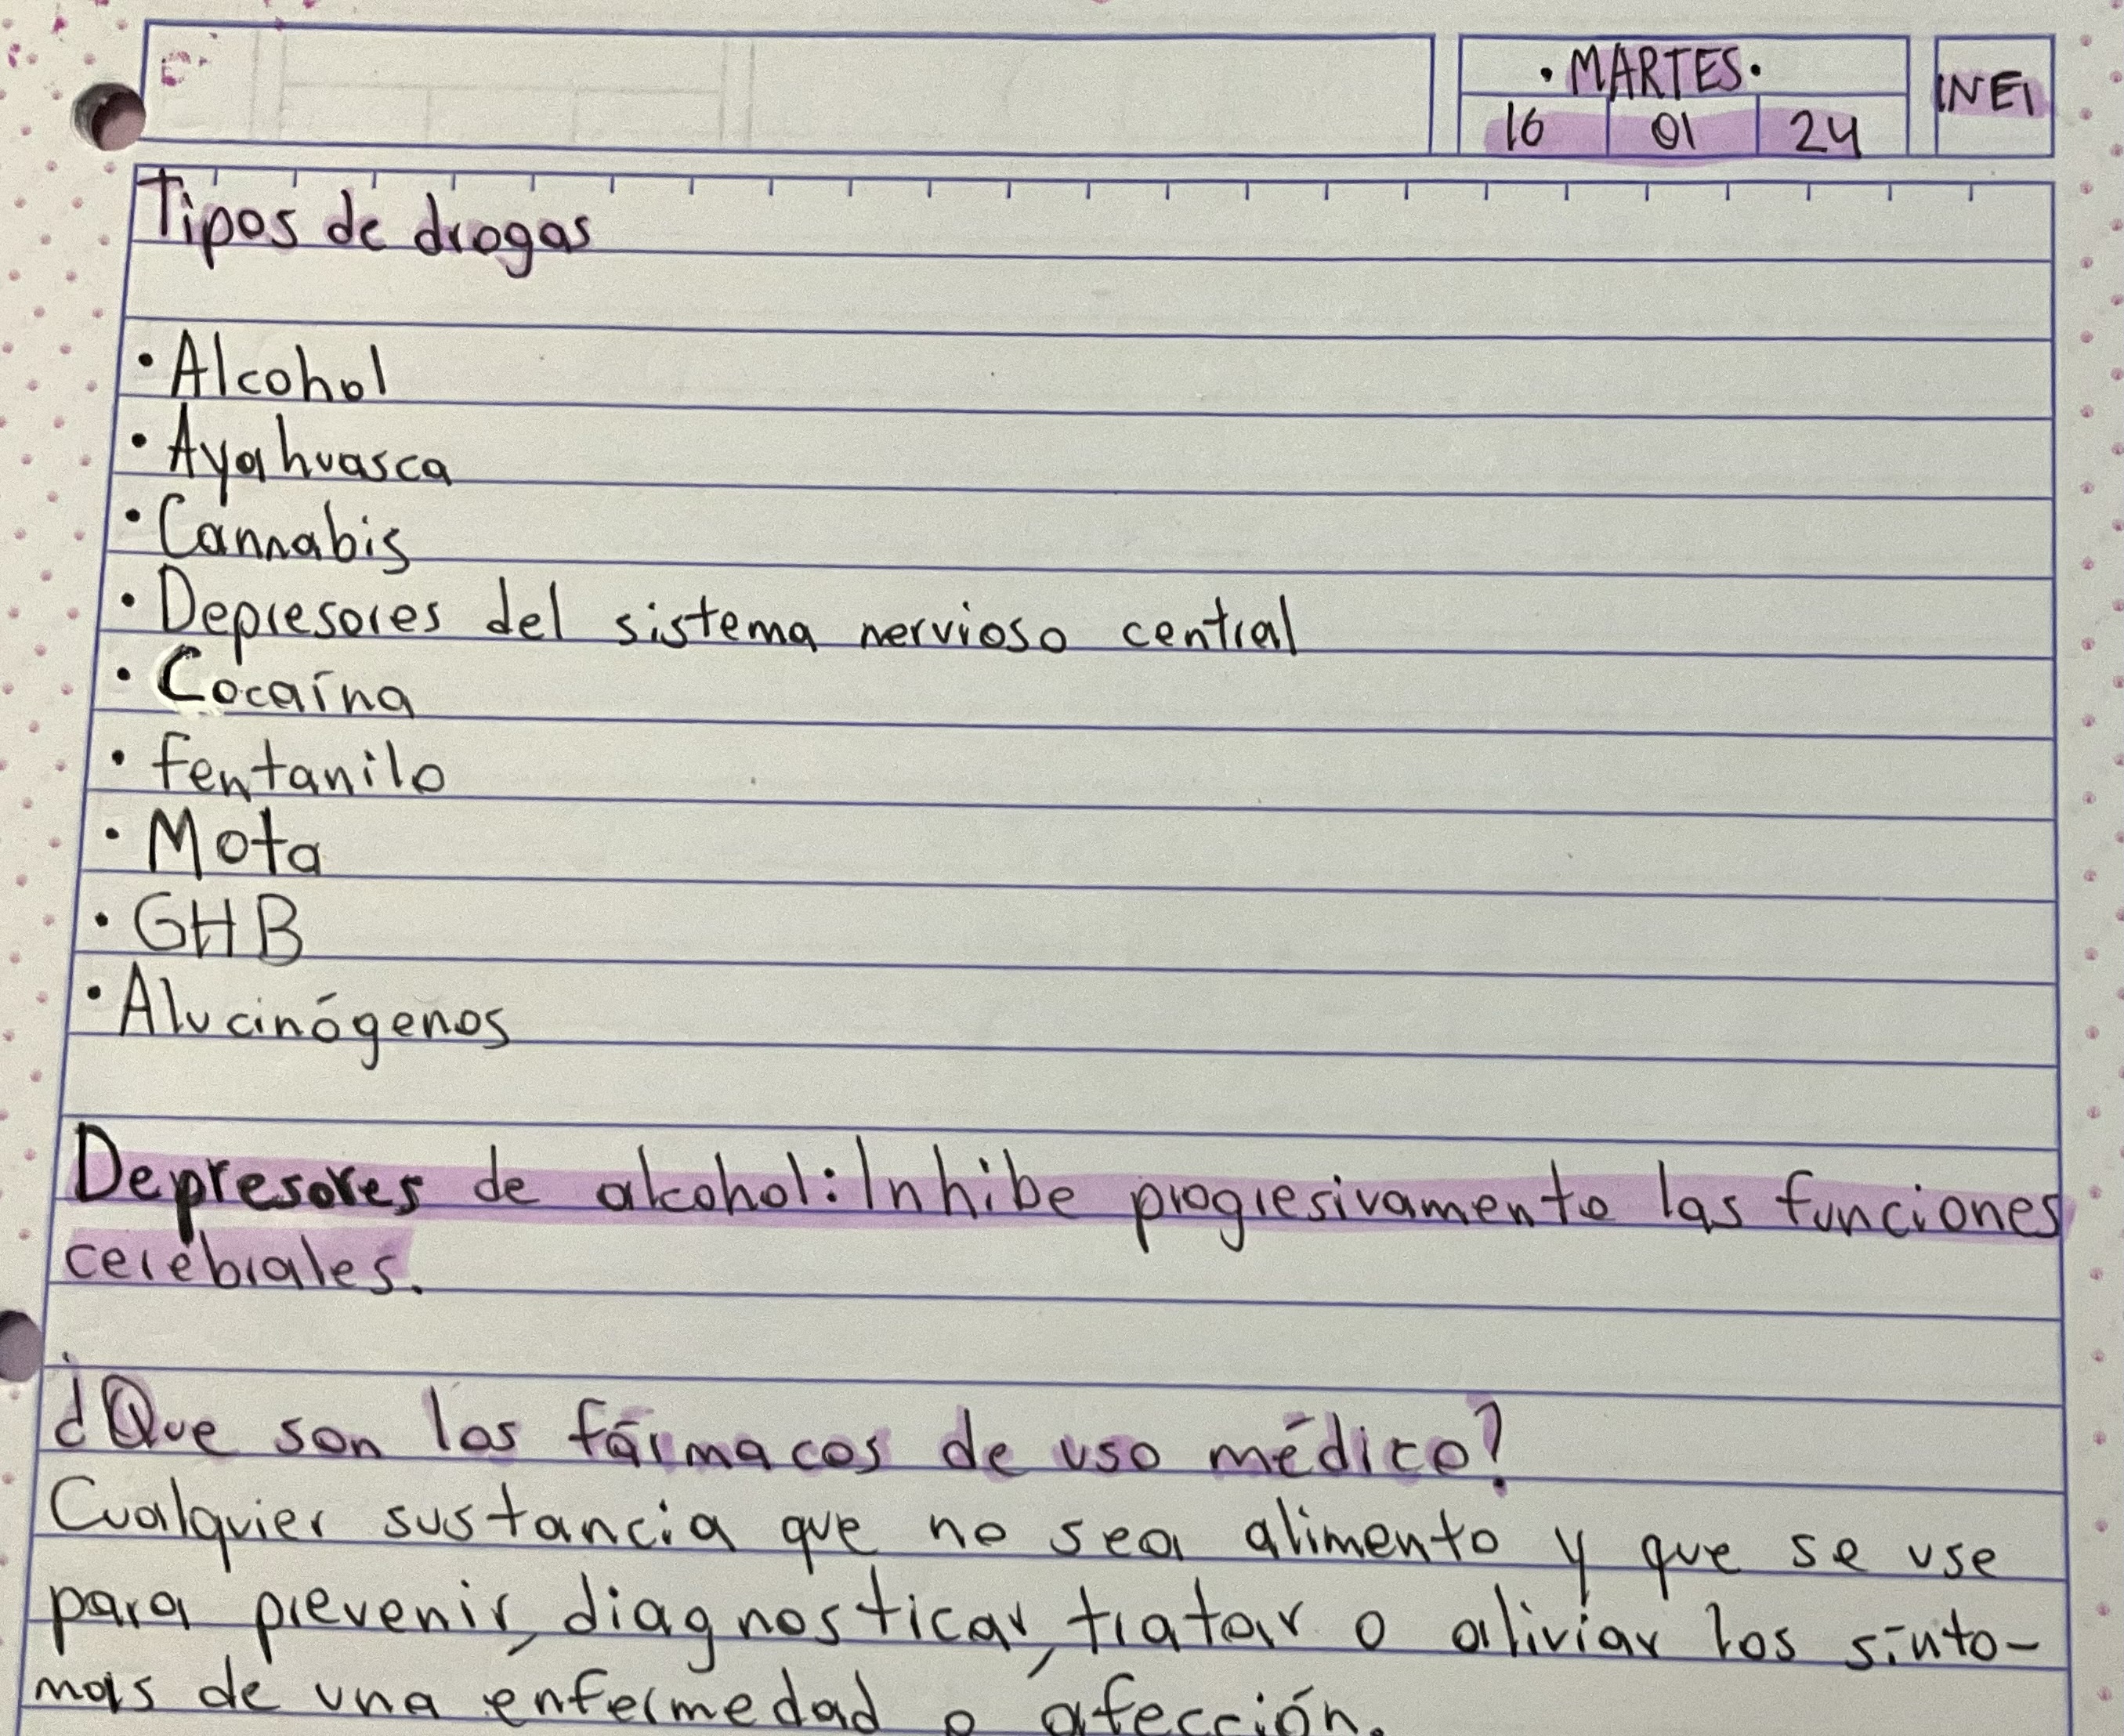 ·MARTES·
16 01 24
INEI
Tipos de drogas
• Alcohol
• Ayahuasca
• Cannabis
• Depresores del sistema nervioso central
• Cocaína
• fentanilo
• Mota
• GHB
• Alucinógenos
Depresores de alcohol: Inhibe progresivamente las funciones
cerebrales.
¿Que son los fármacos de uso médico?
Cualquier sustancia que no sea alimento y que se use
para prevenir, diagnosticar, tratar o aliviar los sínto-
mas de una enfermedad o afección.